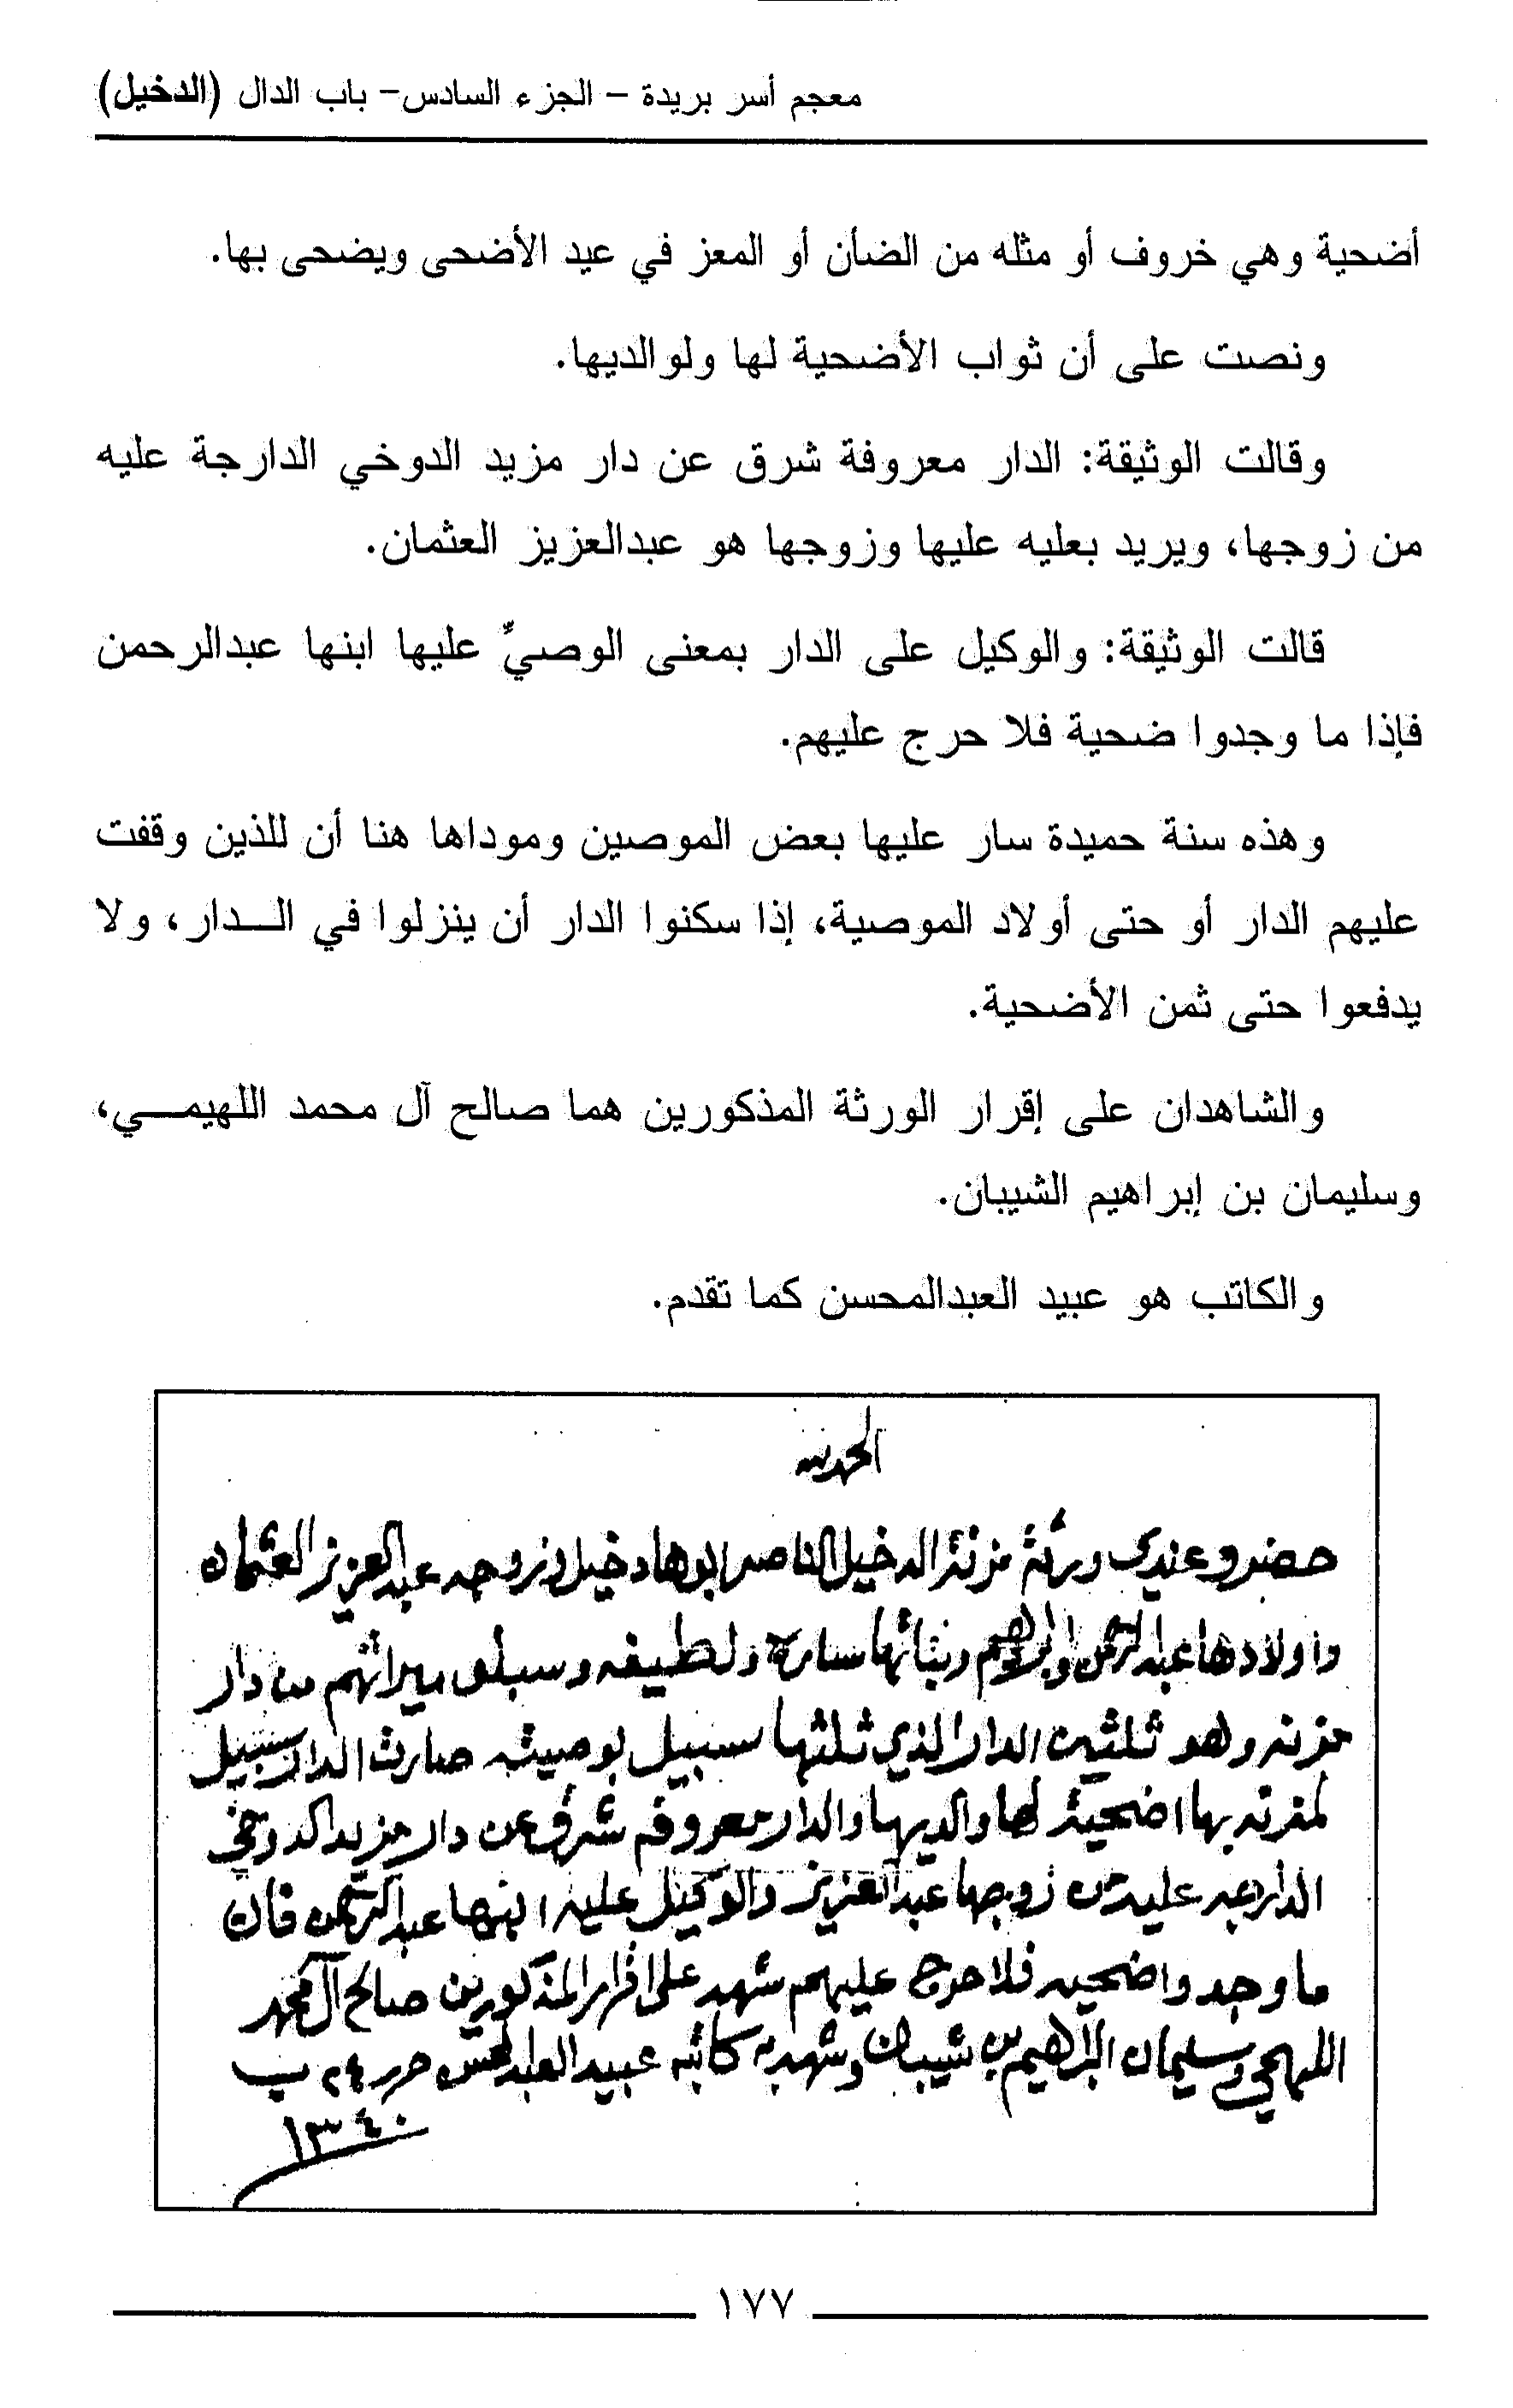 معجم أسر بريدة – الجزء السادس– باب الدال (الدخيل)
أضحية وهي خروف أو مثله من الضأن أو المعز في عيد الأضحى ويضحى بها.
ونصت على أن ثواب الأضحية لها ولوالديها.
وقالت الوثيقة: الدار معروفة شرق عن دار مزيد الدوخي الدارجة عليه
من زوجها، ويريد بعليه عليها وزوجها هو عبدالعزيز العثمان.
قالت الوثيقة: والوكيل على الدار بمعنى الوصيِّ عليها ابنها عبدالرحمن
فإذا ما وجدوا ضحية فلا حرج عليهم.
وهذه سنة حميدة سار عليها بعض الموصين وموداها هنا أن للذين وقفت
عليهم الدار أو حتى أولاد الموصية، إذا سكنوا الدار أن ينزلوا في الـدار، ولا
يدفعوا حتى ثمن الأضحية.
والشاهدان على إقرار الورثة المذكورين هما صالح آل محمد اللهيمـي،
وسليمان بن إبراهيم الشيبان.
والكاتب هو عبيد العبدالمحسن كما تقدم.
الحمد لله
حضرو عندي ورثة مزنة الدخيل الناصر ابوها دخيل وزوجه عبدالعزيز العثمان
واولادها عبدالرحمن وابراهيم وبناتها سارة ولطيفه وسبلو ميراثهم من دار
مزنه وهو ثلثين الدار الذي ثلثها سبيل بوصيته صارت الدار سبيل
لمزنه بها اضحية لها والديها والدار معروفه شرق عن دار مزيد الدوخي
الدارجه عليه من زوجها عبدالعزيز والوكيل عليه ابنها عبدالرحمن فان
ما وجدو اضحيه فلا حرج عليهم شهد على اقرار المذكورين صالح آل محمد
اللهيمي وسليمان البراهيم بن شيبان وشهد به كاتبه عبيد العبدالمحسن حرر ٢٤
١٣٤٠
١٧٧